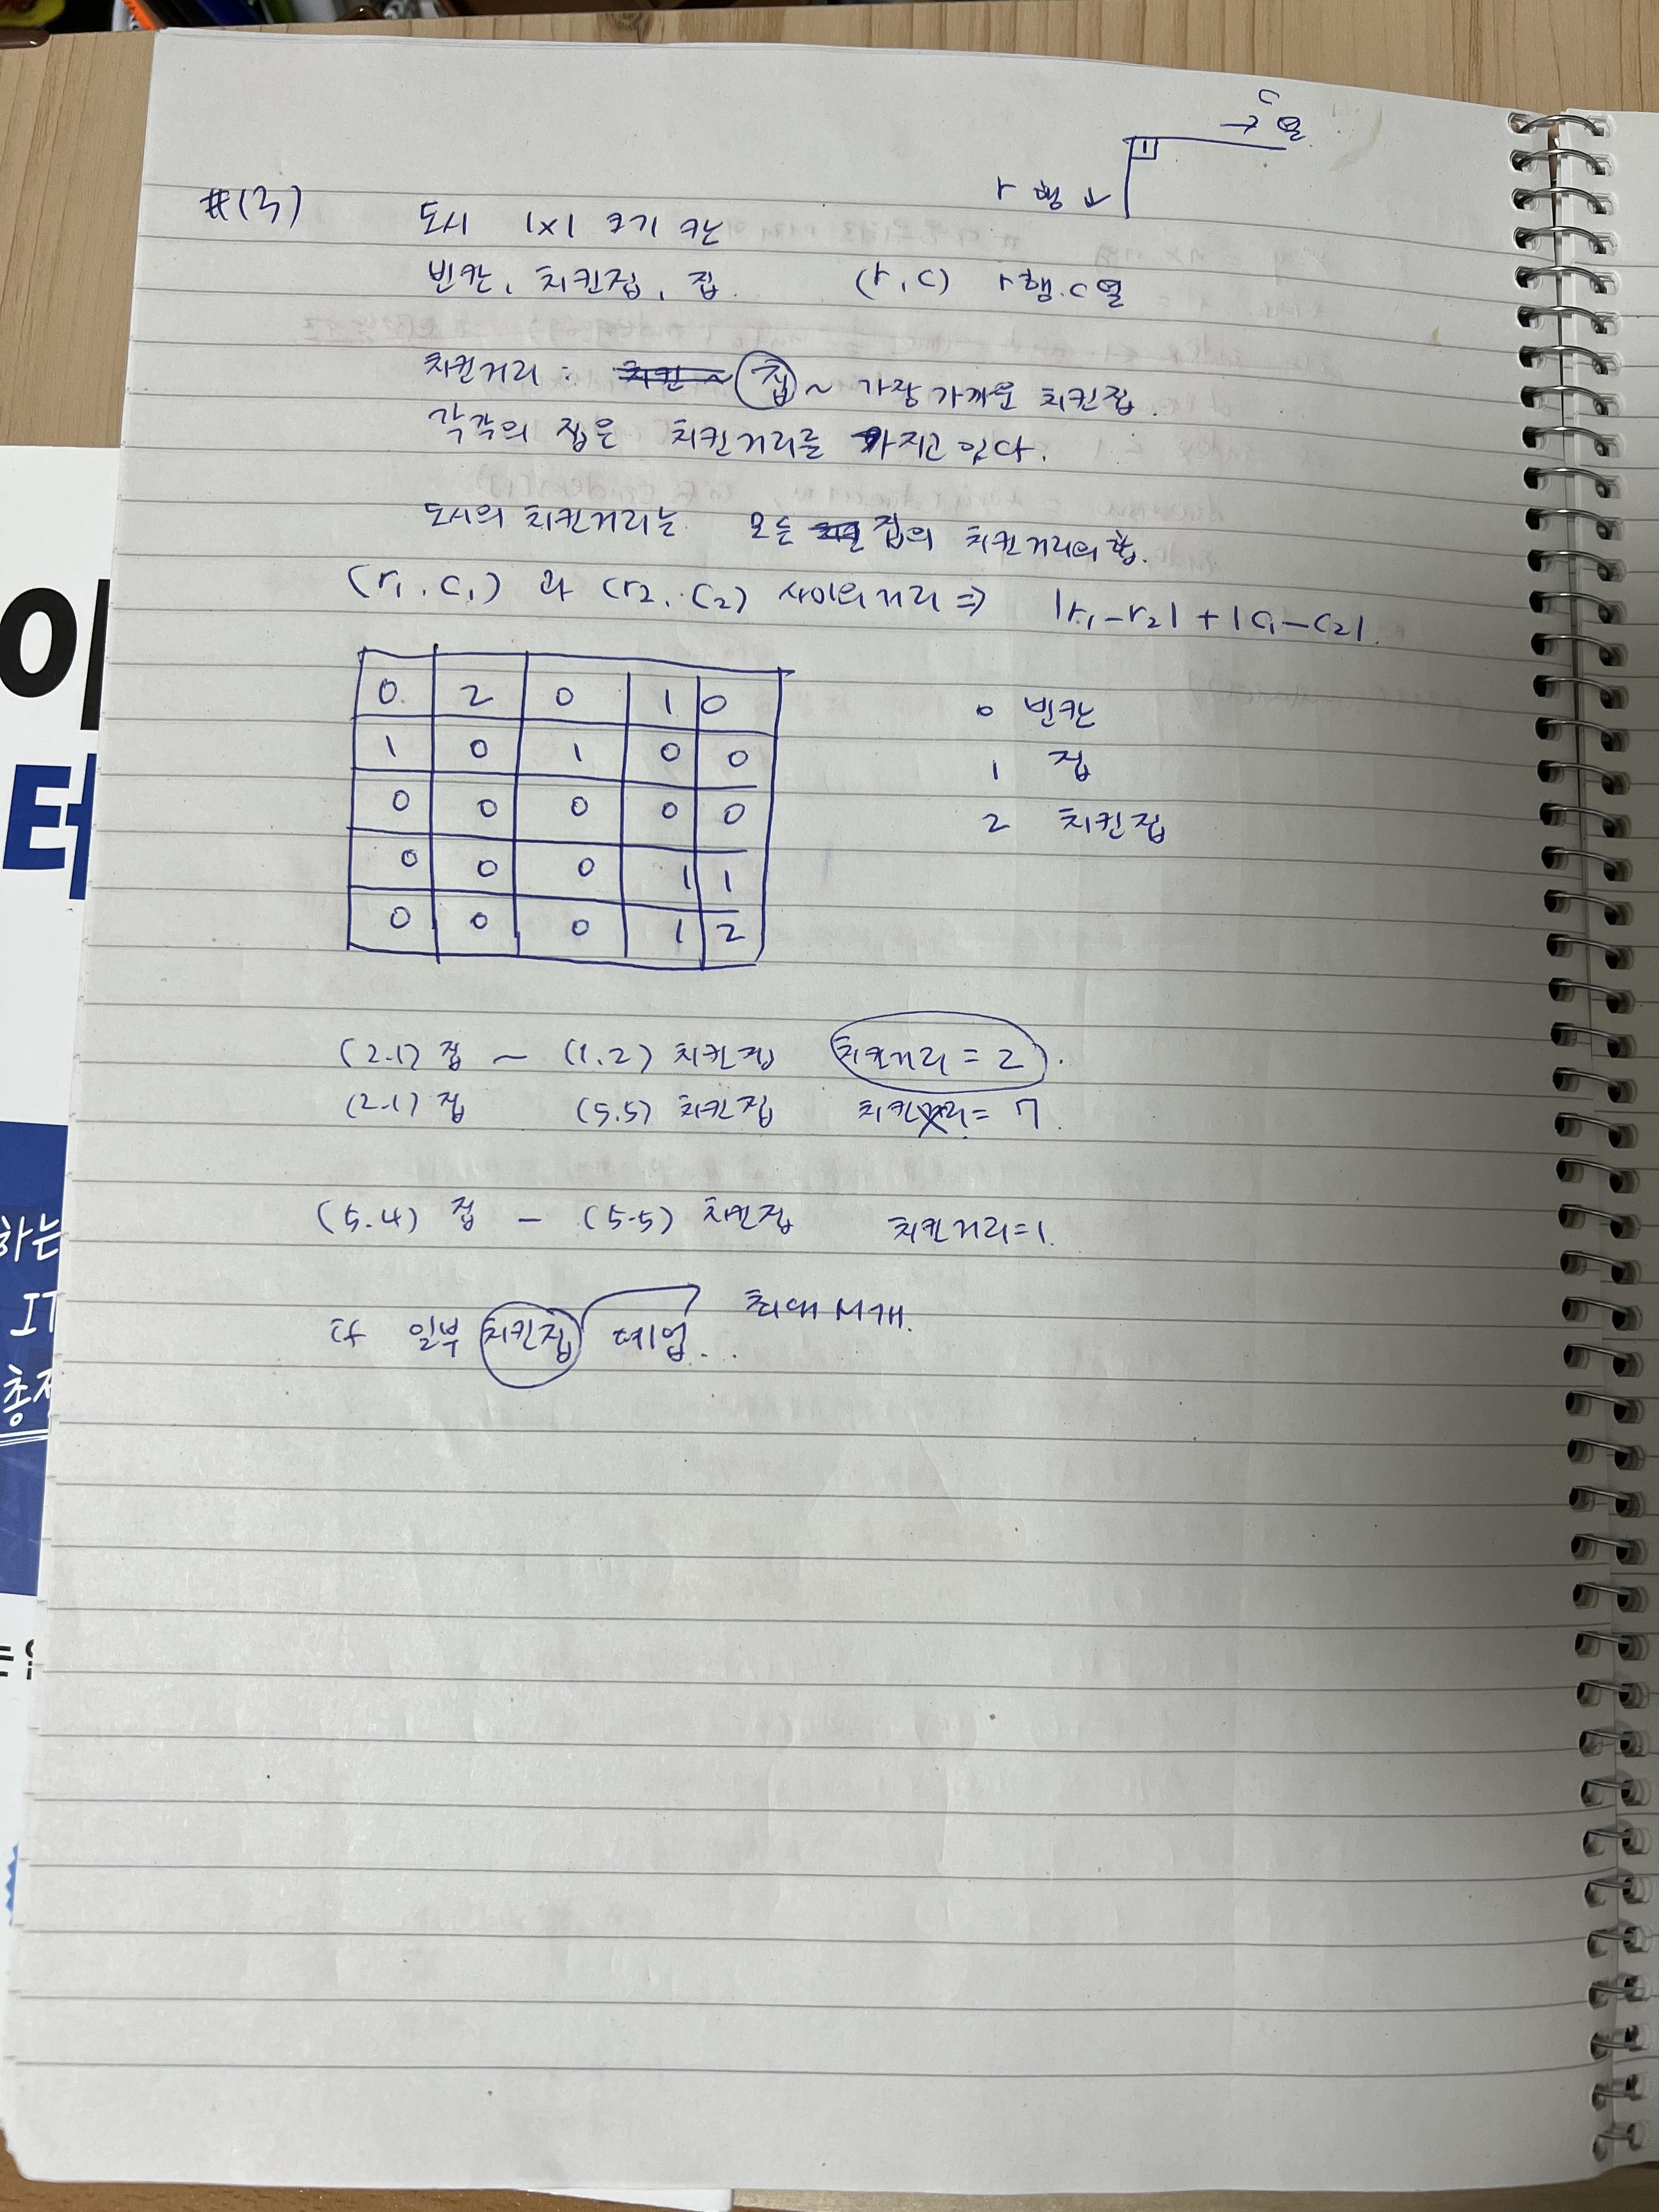 c
→ 열
1
r 행 ↓
#13)
도시 1x1 크기 칸
빈칸, 치킨집, 집. (r, c) r행. c열
치킨거리 : 치킨 ~ 집 ~ 가장 가까운 치킨집.
각각의 집은 치킨거리를 가지고 있다.
도시의 치킨거리는 모든 집의 치킨거리의 합.
(r1, c1) 과 (r2, c2) 사이의 거리 ⇒ |r1-r2| + |c1-c2|.
0 2 0 1 0
1 0 1 0 0
0 0 0 0 0
0 0 0 1 1
0 0 0 1 2
0 빈칸
1 집
2 치킨집
(2.1) 집 ~ (1.2) 치킨집 치킨거리 = 2.
(2.1) 집 (5.5) 치킨집 치킨거리 = 7.
(5.4) 집 - (5.5) 치킨집 치킨거리=1.
일부 치킨집 폐업... 최대 M개.
이
터
하는
IT
총